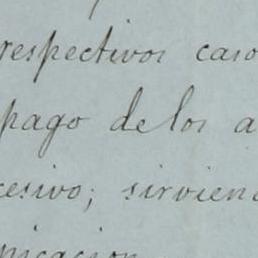 respectivos caso
pago de los a
cesivo; sirvien
nicacion